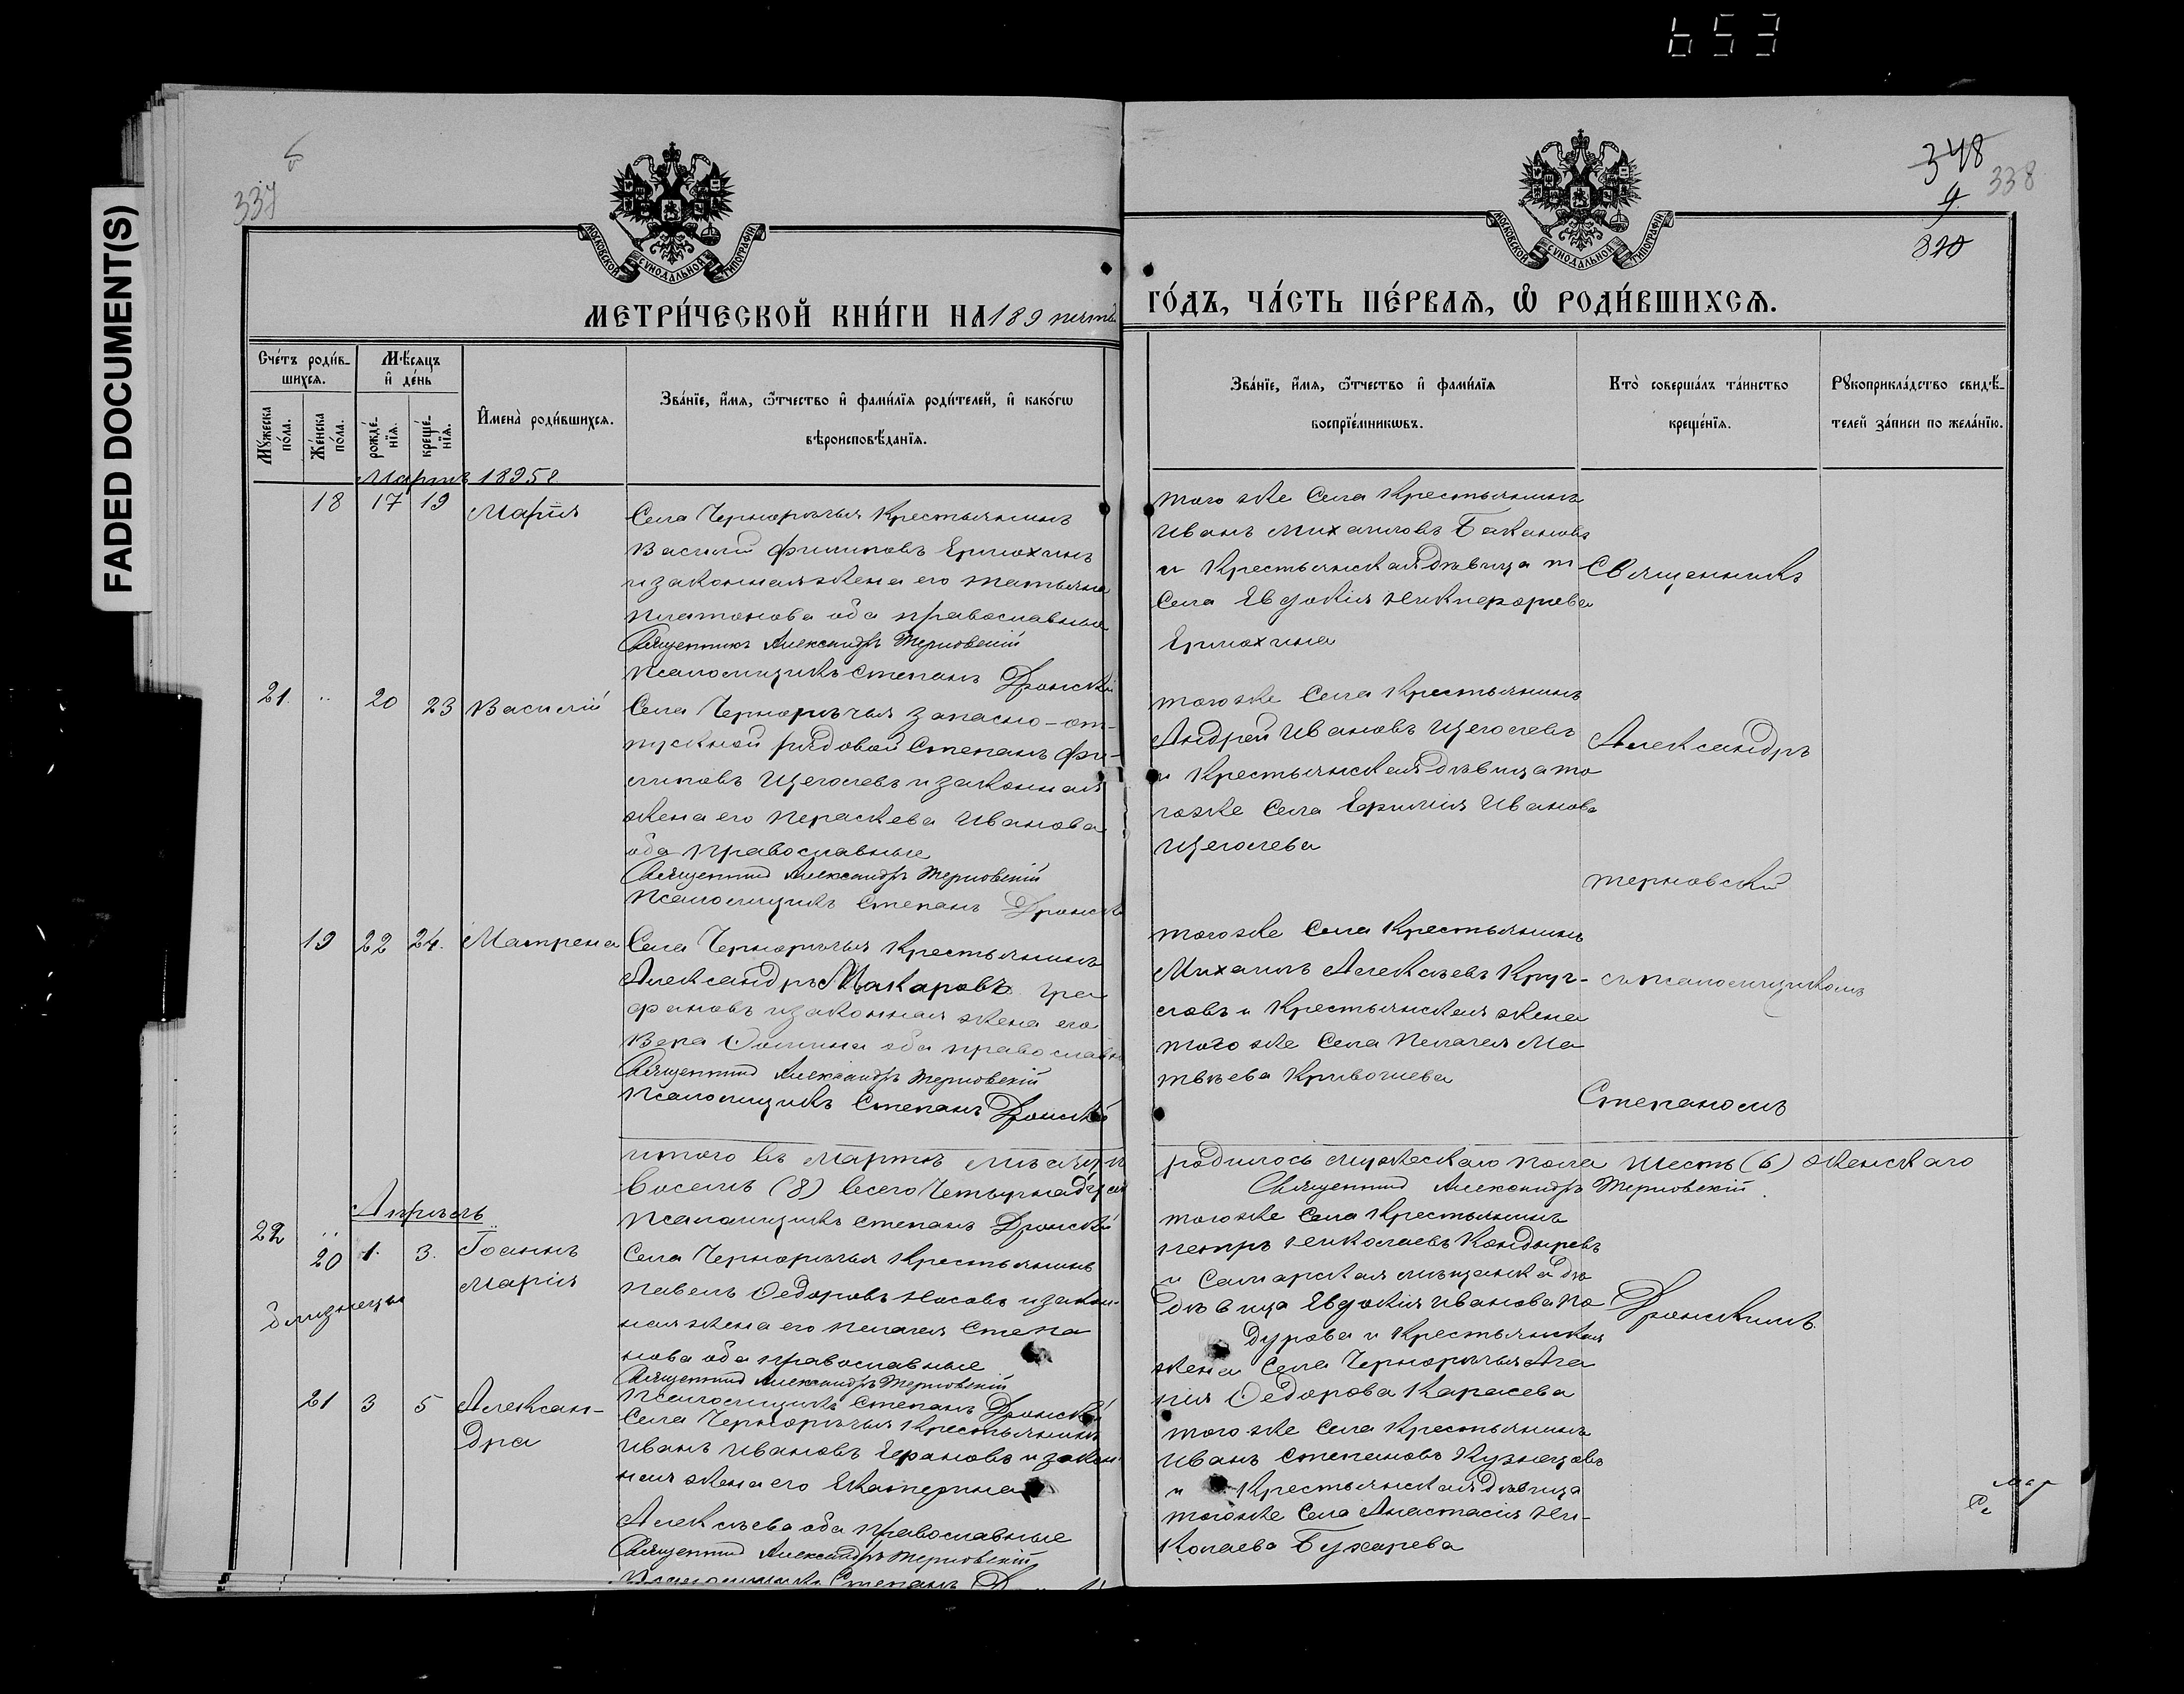 653
FADED DOCUMENT(S)
337
348
338
9
820
МОСКОВСКОЙ СУНОДАЛЬНОЙ ТИПОГРАФІИ
МОСКОВСКОЙ СУНОДАЛЬНОЙ ТИПОГРАФІИ
МЕТРИ́ЧЕСКОЙ КНИ́ГИ НА 189 пятый
ГО́ДЪ, ЧА́СТЬ ПЕ́РВАѦ, Ѿ РОДИ́ВШИХСѦ.
Сче́тъ роди́в-
шихсѧ.
Мѣ́сѧцъ
и҆ де́нь
Мꙋ́жеска
по́ла.
Же́нска
по́ла.
рожде́-
нїѧ.
креще́-
нїѧ.
И҆мена̀ роди́вшихсѧ.
Зва́нїе, и҆́мѧ, ѻ҆́тчество и҆ фами́лїѧ роди́телей, и҆ како́гѡ
вѣроисповѣ́данїѧ.
Зва́нїе, и҆́мѧ, ѻ҆́тчество и҆ фами́лїѧ
воспрїе́мникѡвъ.
Кто̀ соверша́лъ та́инство
креще́нїѧ.
Рꙋкоприкла́дство свидѣ́-
телей за́писи по жела́нїю.
Мартъ 1895 г
18 17 19 Марія
Села Чернорѣчья Крестьянинъ
Василій Филиповъ Ермохинъ
и законная жена его Татьяна
Платонова оба православные
Священникъ Александръ Терновскій
Псаломщикъ Степанъ Дронскій
того же Села Крестьянинъ
Иванъ Михаиловъ Бакановъ
и Крестьянская дѣвица т
Села Евдокія Никифорова
Ермохина
Священникъ
21. " 20 23 Василій
Села Чернорѣчья запасно-от-
пускной рядовой Степанъ Фи-
липовъ Щеголевъ и законная
жена его Пераскева Иванова
оба Православные
Священникъ Александръ Терновскій
Псаломщикъ Степанъ Дронскі
того же Села Крестьянинъ
Андрей Ивановъ Щеголевъ
и Крестьянская дѣвица то
гоже Села Ефимія Иванова
Щеголева
Александръ
Терновскій
19 22 24. Матрена
Села Чернорѣчья Крестьянинъ
Александръ Макаровъ
фановъ и законная жена его
Вера Фомина оба православны
Священникъ Александръ Терновскій
Псаломщикъ Степанъ Дронскій
того же Села Крестьянинъ
Михаилъ Алексѣевъ Круг-
ловъ и Крестьянская жена
того же Села Пелагея Ма
твѣева Кривочиева
съ псаломщикомъ
Степаномъ
итого въ Мартѣ мѣсяцѣ
родилось мужескаго пола шесть (6) женскаго
восемь (8) всего Четырнадцать
Священникъ Александръ Терновскій
Псаломщикъ Степанъ Дронскій
Апрѣль
22 "
20 1. 3. Іоаннъ
Марія
близнецы
Села Чернорѣчья Крестьянинъ
Павелъ Ѳедоровъ Носовъ и закон-
ная жена его Пелагея Степа
нова оба православные
Священникъ Александръ Терновскій
Псаломщикъ Степанъ Дронскій
того же Села Крестьянинъ
Петръ Николаевъ Кондыревъ
и Самарская мѣщанка дѣ
дѣвица Евдокія Иванова По
дурова и Крестьянская
жена Села Чернорѣчья Ага
пія Ѳедорова Карасева
Дронскимъ.
21 3 5 Алексан-
дра
Села Чернорѣчья Крестьянинъ
Иванъ Ивановъ и закон
ная жена его Екатерина
Алексѣева оба православные
Священникъ Александръ Терновскій
Псаломщикъ Степанъ
того же Села Крестьянинъ
Иванъ Степановъ Кузнецовъ
и Крестьянская дѣвица
тогоже Села Анастасія Ни-
колаева Бухарева